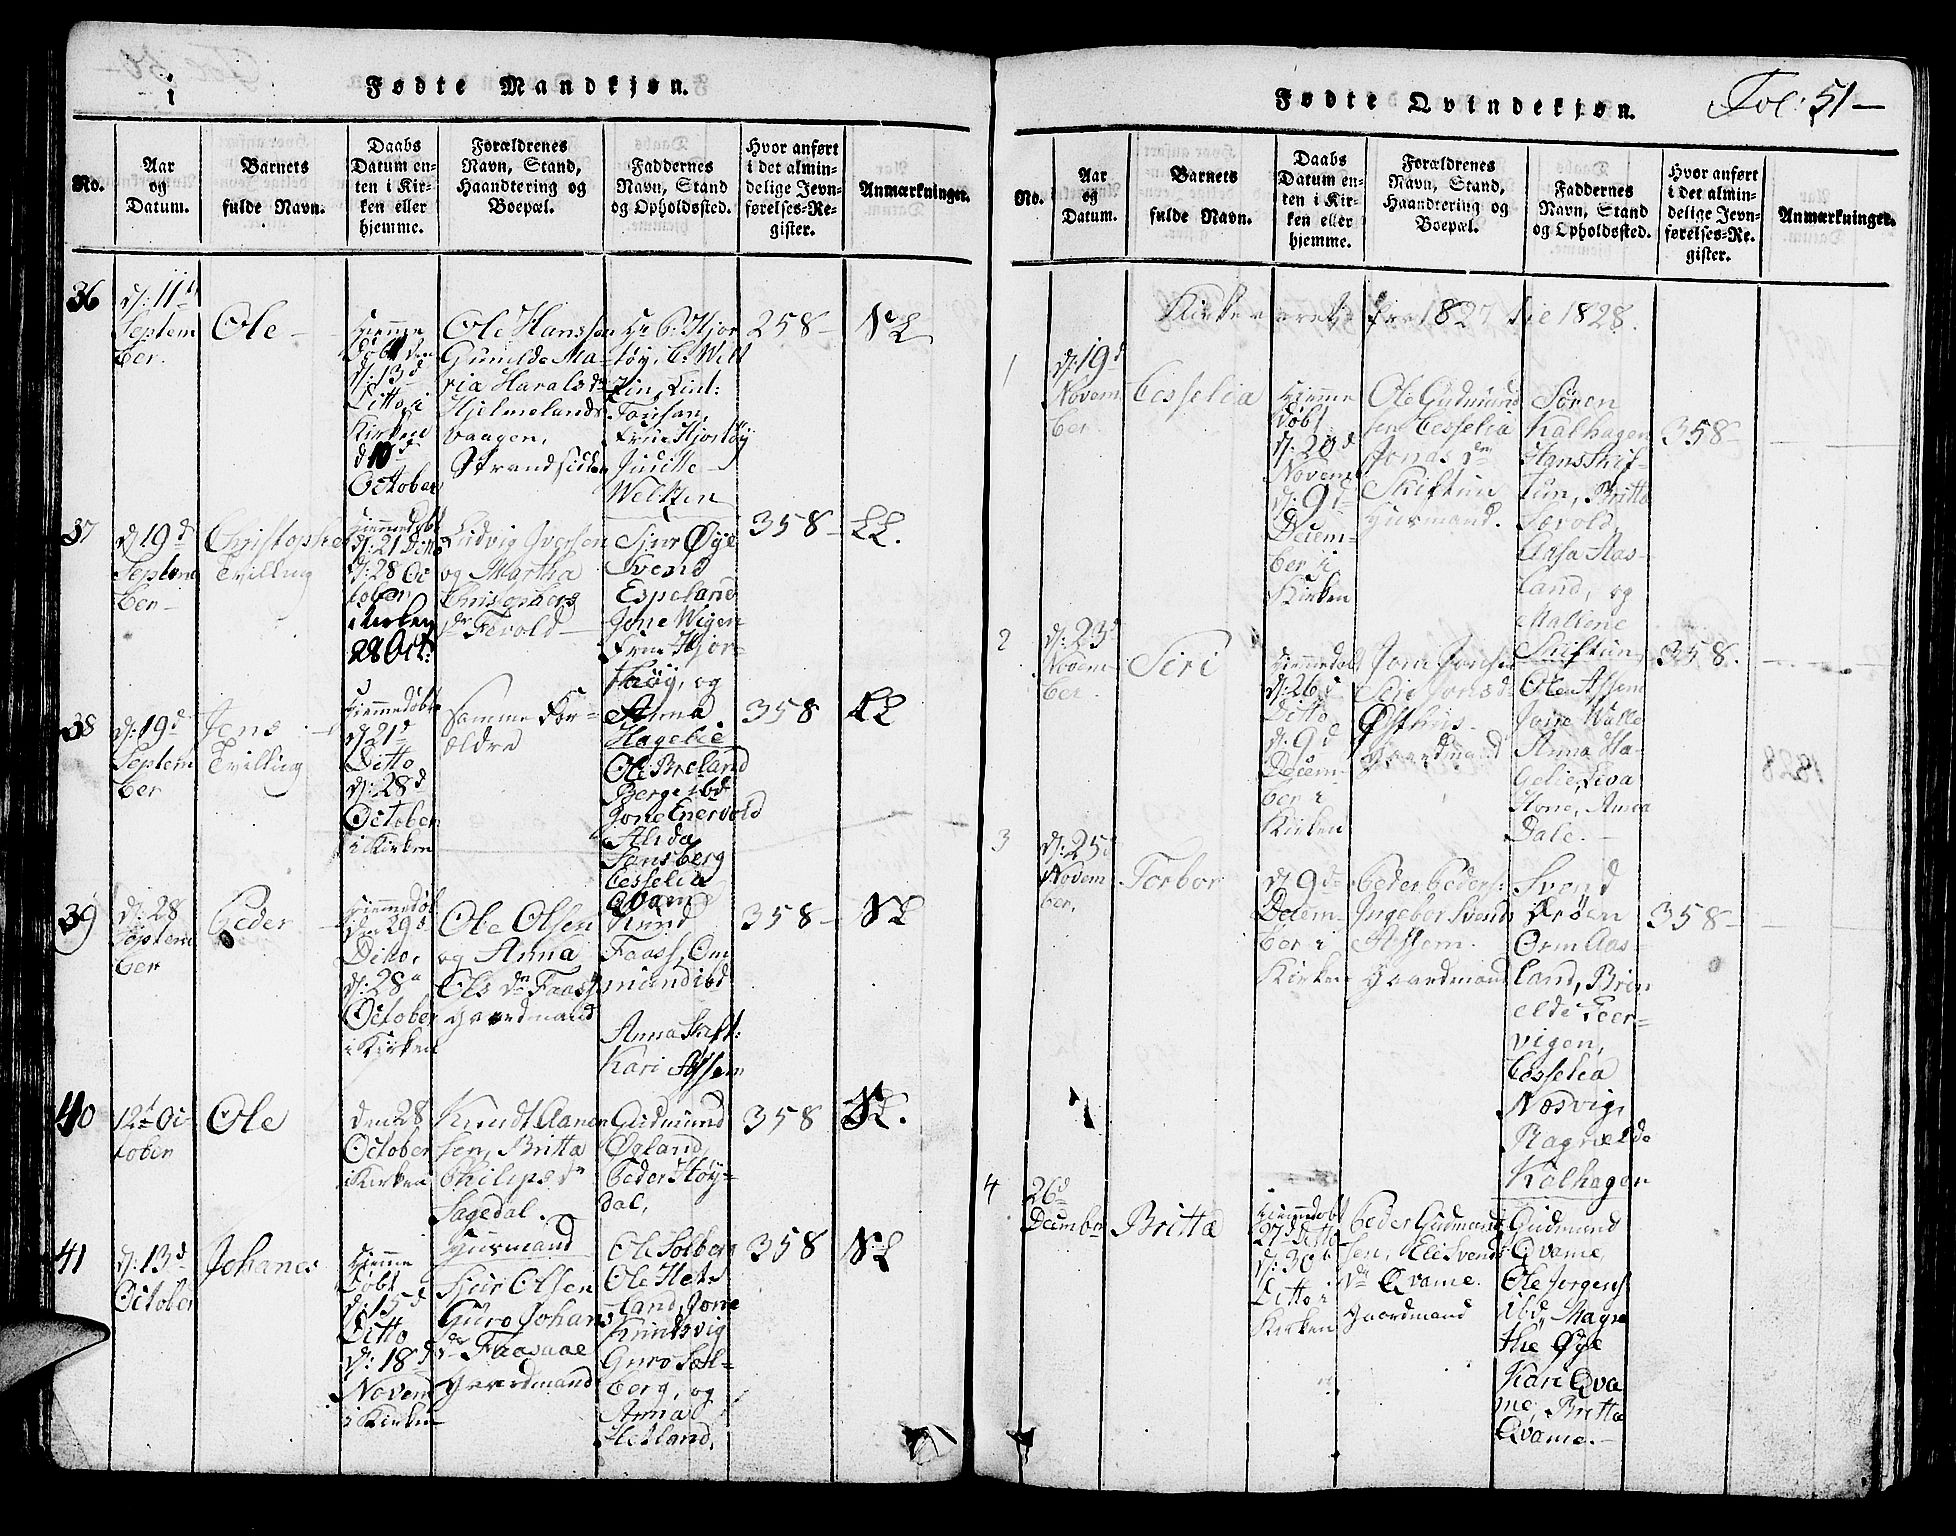 Fødte Mandkjøn.
No.
Aar
og
Datum.
Barnets
fulde Navn.
Daabs
Datum en-
ten i Kir-
ken eller
hjemme.
Forældrenes
Navn, Stand,
Haandtering og
Boepæl.
Faddernes
Navn, Stand
og Opholdssted.
Hvor anført
i det almin-
delige Jevn-
førelses-Re-
gister.
Anmærkninger.
36
d: 11
Septem
ber.
Ole
Hiemme
døbt den
d: 13d
Ditto, i
Kirken
d 10d
October
Ole Hanssen
Gunilde Ma-
ria Haralsdr
Hjelmelands
vaagen,
Strandsidder
Hjor
tøy,
Frue Hjortøy
Juditte
Weltzen
258
37
d: 19d
Septem
ber
Christopher
Tvilling
Hiemmedøbt
d: 21 Ditto
d: 28 Oc
tober
i Kirken
28 Oct:
Ludvig Iversen
og Martha
dr Fevold
Sjur Øye
Svend
Espeland
Jone Wigen
Frue Hjor-
tøy, og
Anna
Hagelie
358
38
d: 19d
Septem
ber
Jens
Tvilling
Hiemmedøbt
d 21d
Ditto
d: 28d
October
i Kirken
Samme For-
ældre
Ole Breland
Jone Enervold
Alida
Sansberg
Cesselia
Qvame
358
39
d: 28
Septem
ber
Peder
Hiemmedøbt
den 29d
Ditto,
d: 28d
October
i Kirken
Ole Olsen
og Anna
Ols dr Faass
Gaardmand
Knud
Faass, Om
mund ibd
Anna Skift:
Kari Assem
358
40
12d Oc
tober
Ole
den 28
October
i Kirken
Knudt Aanen
sen, Britta
Philipsd
Sagedal.
Huusmand
Gudmund
Øgland,
Peder Høy-
dal,
358
41
d: 13d
October
Johanes
Hiemme
døbt
d: 15d
Ditto
d: 18d
Novem
i Kirken
Sjur Olsen
Guro Johans
dr Faasaae
Gaardmand
Ole Solberg
Ole Het
land, Jone
Knudsvig
Guro Sol-
berg, og
Anna
Hetland.
358
Fødte Qvindekjøn.
Fol: 51
No.
Aar
og
Datum.
Barnets
fulde Navn.
Daabs
Datum en-
ten i Kir-
ken eller
hjemme.
Forældrenes
Navn, Stand,
Haandtering og
Boepæl.
Faddernes
Navn, Stand
og Opholdssted.
Hvor anført
i det almin-
delige Jevn-
førelses-Re-
gister.
Anmærkninger.
Kirkeaaret fra 1827 til 1828.
1
d: 19d
Novem
ber
Cesselia
Hiemme
døbt
d: 20d
Novem
d: 9d
Decem-
ber i
Kirken
Ole Gudmund
sen Cesselia
Jonas dr
Skiftun
Huusmand.
Søren
Kalhagen
Hans Skif-
tun, Britta
Aasa Aas-
land, og
Mallene
Skiftun
358
2
d: 23d
Novem
ber
Siri
Hiemmedøbt
d: 26d
Ditto
d: 9d
Decem-
ber i
Kirken
Jone Jonsen
Siri Jonsdr
Østhus
Gaardmand
Ole Assem
Jone Walle
Anna Ha-
gelie,
Hone, Anna
Dale.
358.
3
d: 25d
Novem
ber.
Torbor
d: 9d
Decem-
ber i
Kirken
Peder Peders:
Ingebor Svends
Assem.
Gaardmand
Svend
Orm Aas-
land,
vigen,
Cesselia
Næsvig,
Ragnelde
Kalhagen
358
4
26d
December
Britta
Hiemmedøbt
27d Ditto
d: 30d
Ditto i
Kirken
Peder Gudmund
sen, Eli Svends
dr Qvame.
Gaardmand
Gudmund
Qvame,
Ole Jørgens
ibd, Magre
the Øye
Kari Qva
me, Britta
Qvame.